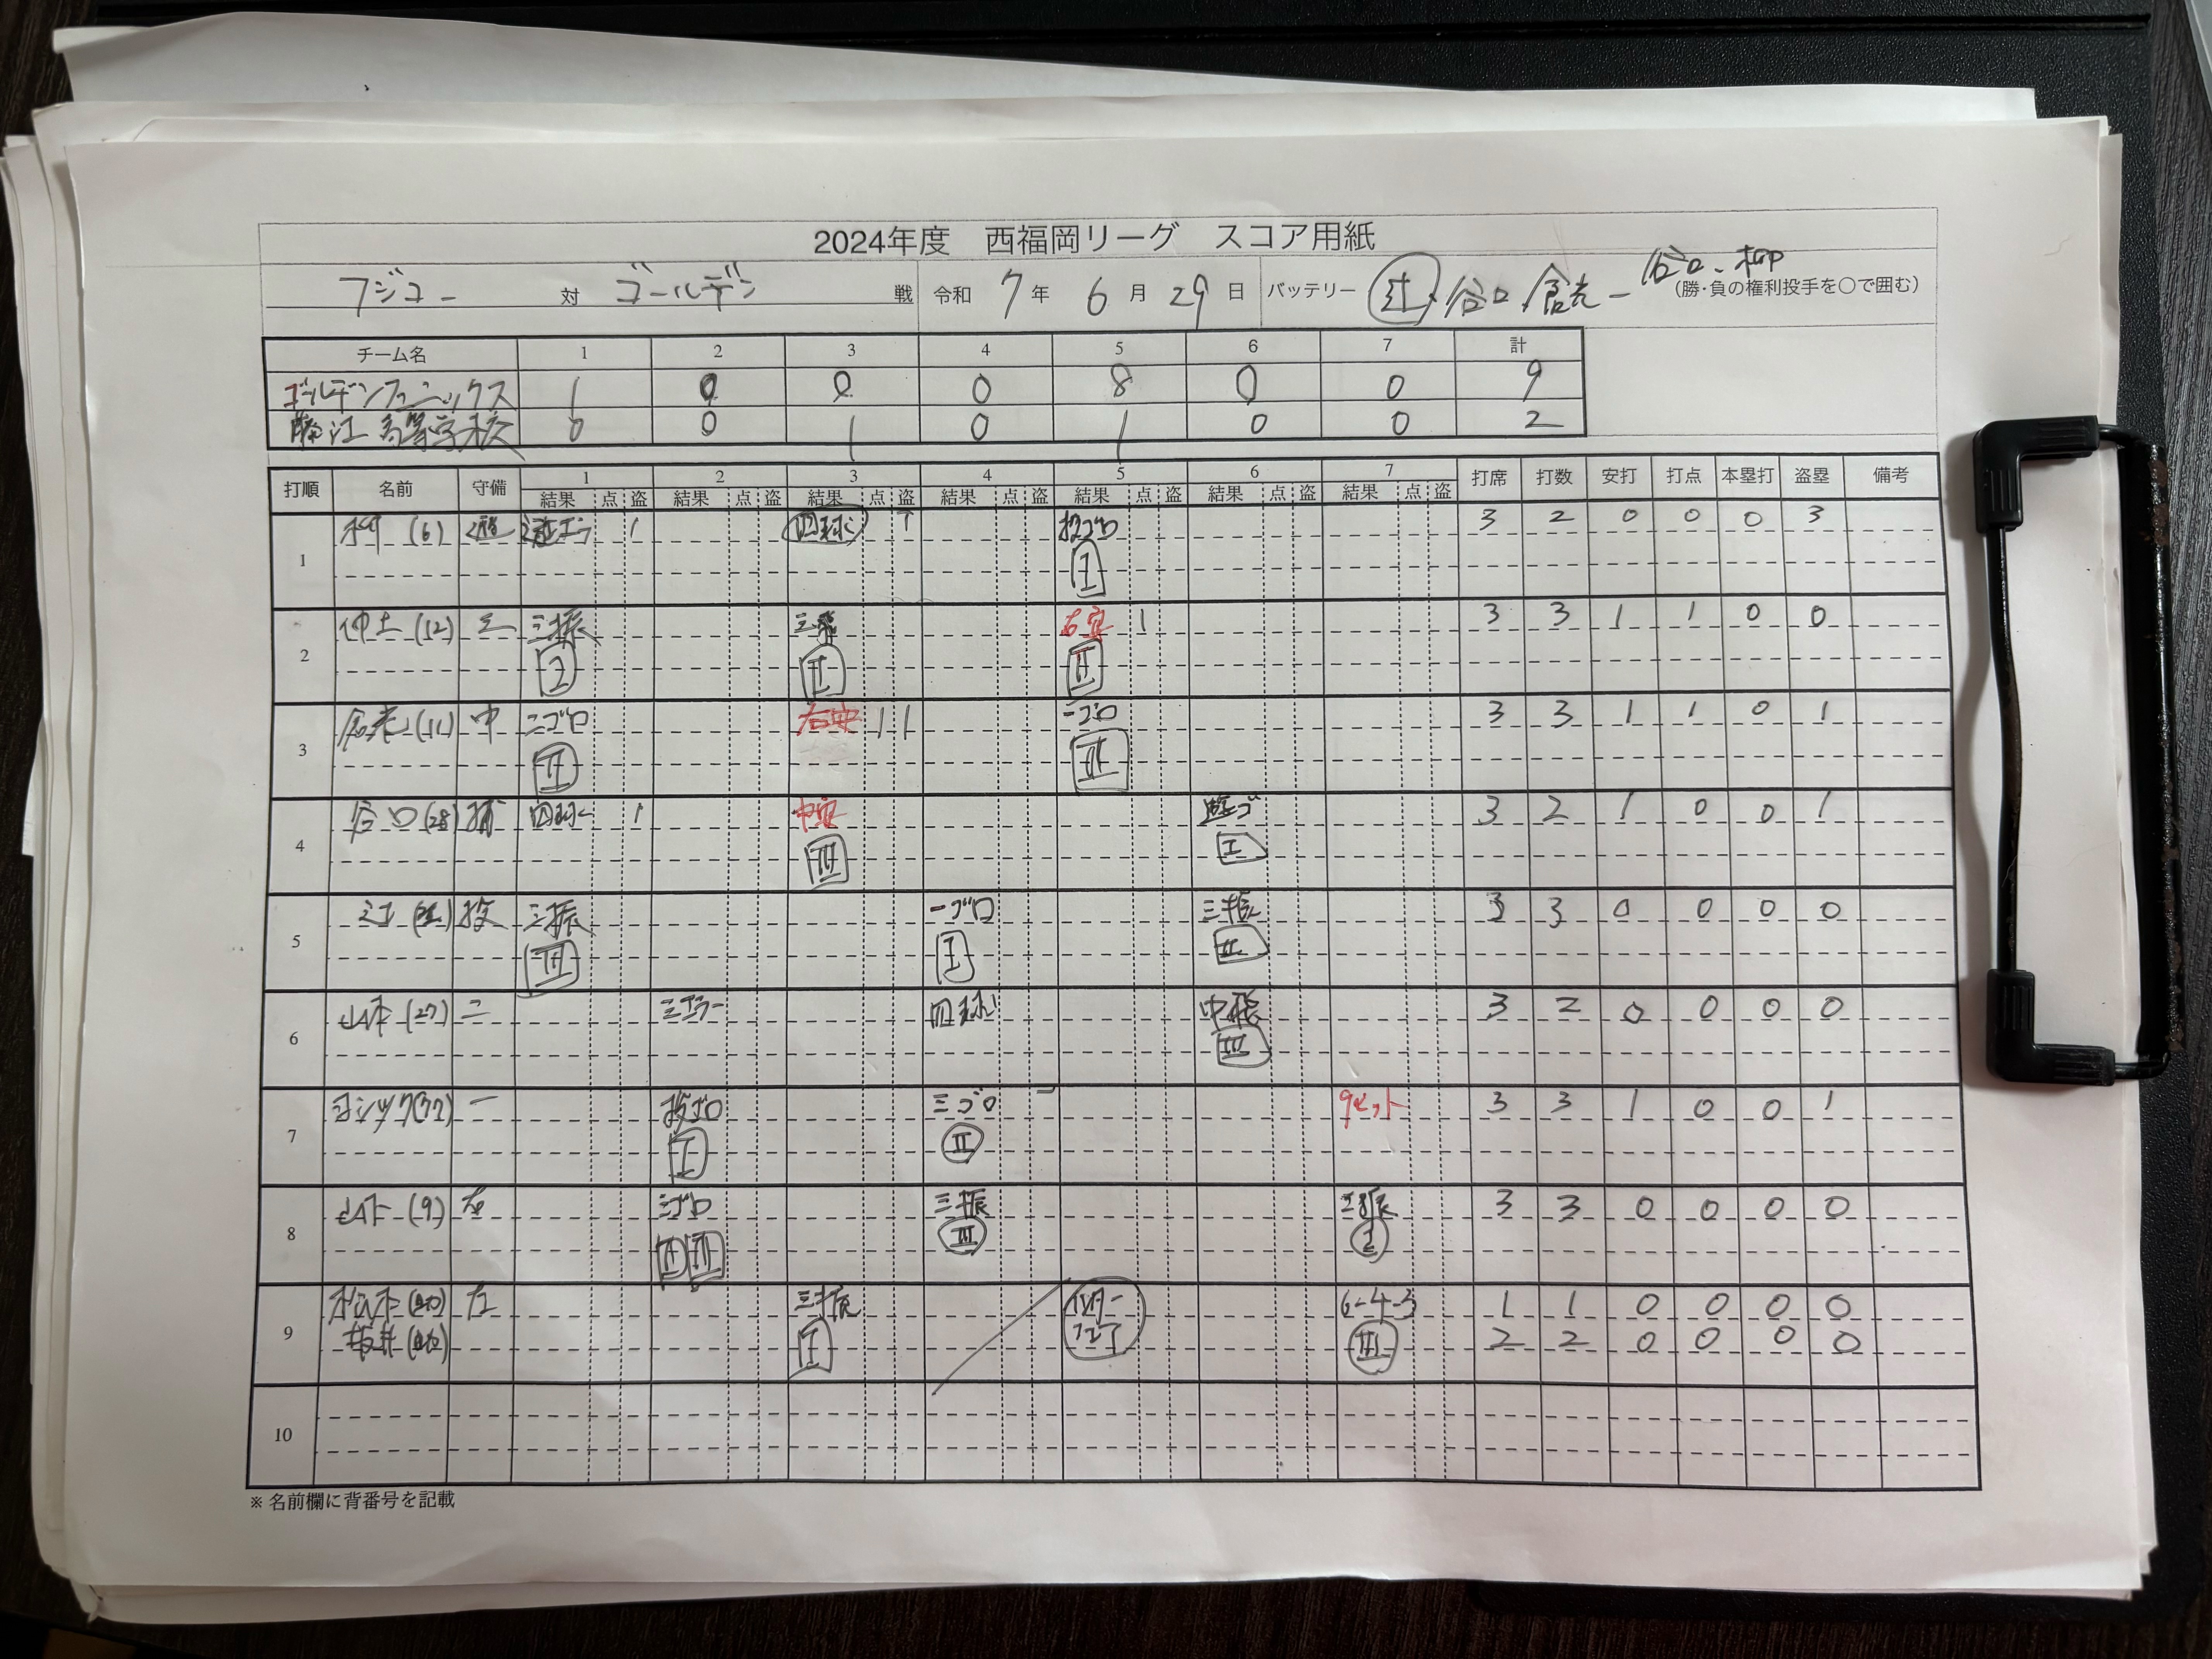 2024年度 西福岡リーグ スコア用紙
フジコー 対 ゴールデン 戦 令和 7 年 6 月 29 日 バッテリー 辻・谷口 倉光 - 谷口、柳 (勝・負の権利投手を○で囲む)
チーム名 1 2 3 4 5 6 7 計
ゴールデンフェニックス 1 0 0 0 8 0 0 9
藤江高等学校 0 0 1 0 1 0 0 2
打順 名前 守備 1 2 3 4 5 6 7 打席 打数 安打 打点 本塁打 盗塁 備考
結果 点 盗 結果 点 盗 結果 点 盗 結果 点 盗 結果 点 盗 結果 点 盗 結果 点 盗
1 (6) 遊 遊エラ 1 四球 1 投ゴロ I 3 2 0 0 0 3
2 (12) 三 三振 三振 II 右安 1 II 3 3 1 1 0 0
3 (11) 中 二ゴロ II 右安 1 1 一ゴロ III 3 3 1 1 0 1
4 谷口 (28) 捕 四球 1 中安 III 遊ゴ I 3 2 1 0 0 1
5 辻 投 三振 III 一ゴロ I 三振 II 3 3 0 0 0 0
6 山本 (27) 二 三エラー 四球 中飛 III 3 2 0 0 0 0
7 ヨシック(32) 一 投ゴロ I 三ゴロ II 9ヒット 3 3 1 0 0 1
8 山下 (9) 左 三ゴロ II III 三振 III 三振 I 3 3 0 0 0 0
9 松本 (助) 左 三振 I 6-4-3 III 1 1 0 0 0 0
(助) 2 2 0 0 0 0
10
※ 名前欄に背番号を記載